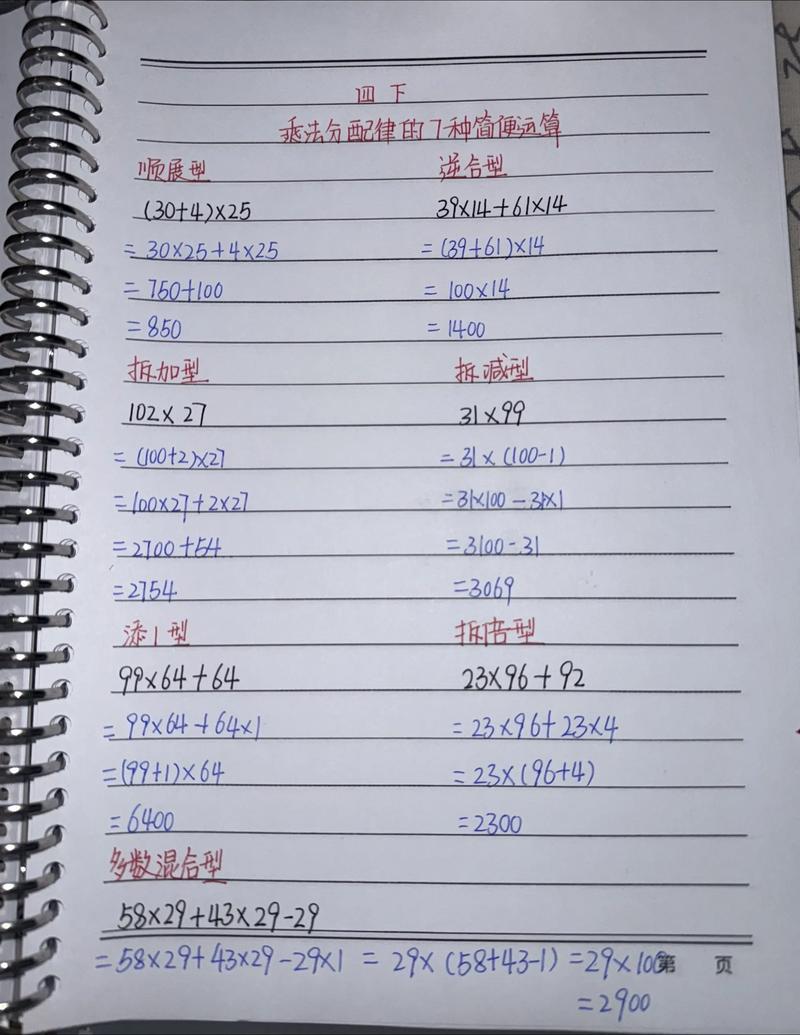 四下
乘法分配律的7种简便运算
顺展型
(30+4)×25
=30×25+4×25
=750+100
=850
逆合型
39×14+61×14
=(39+61)×14
=100×14
=1400
拆加型
102×27
=(100+2)×27
=100×27+2×27
=2700+54
=2754
拆减型
31×99
=31×(100-1)
=31×100-31×1
=3100-31
=3069
添1型
99×64+64
=99×64+64×1
=(99+1)×64
=6400
拆倍型
23×96+92
=23×96+23×4
=23×(96+4)
=2300
多数混合型
58×29+43×29-29
=58×29+43×29-29×1=29×(58+43-1)=29×100
=2900
第 页